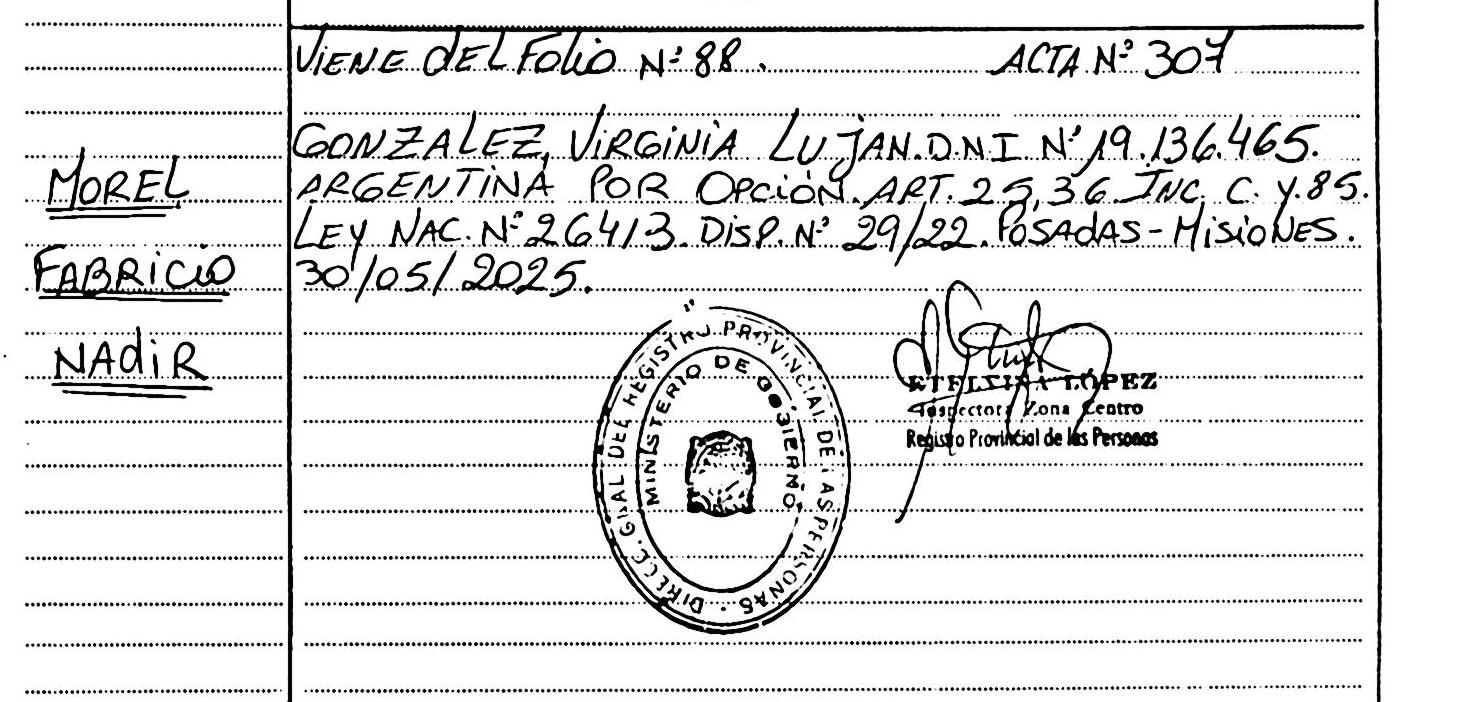 VIENE DEL FOLIO Nº 88. ACTA Nº 307
MOREL
FABRICIO
NADIR
GONZALEZ, VIRGINIA LUJAN. D.N.I Nº 19.136.465.
ARGENTINA POR OPCIÓN. ART. 25, 36 INC. C. Y. 85.
LEY NAC. Nº 26413. DISP. Nº 29/22. POSADAS - MISIONES.
30/05/2025.
DIRECC. GRAL DEL REGISTRO PROVINCIAL DE LAS PERSONAS
MINISTERIO DE GOBIERNO
LÓPEZ
Inspectora Zona Centro
Registro Provincial de las Personas